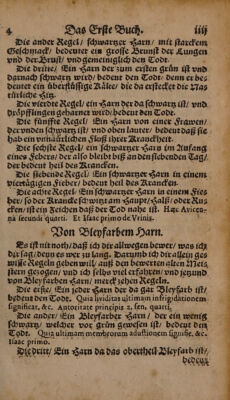 4 Das Erste Buch. iiij
Die ander Regel / schwartzer Harn / mit starckem
Geschmack / bedeutet ein grosse Brunst der Lungen
und der Brust / und gemeiniglich den Todt.
Die dritte / Ein Harn der zum ersten grün ist und
darnach schwartz wird / bedeut den Todt: denn er be-
deutet ein überflüssige Kälte / die da erstecket die Nat
türliche Hitz.
Die vierdte Regel / ein Harn der da schwartz ist / und
tröpfflingen gehärnet wird / bedeut den Todt.
Die fünffte Regel / Ein Harn von einer Frawen /
der unden schwartz ist / und oben lauter / bedeut daß sie
hab ein unnatürlichen Fluß ihrer Kranckheit.
Die sechste Regel / ein schwartzer Harn im Anfang
eines Febers / der also bleibt biß an den siebenden Tag /
der bedeut heil des Krancken.
Die siebende Regel / Ein schwartzer Harn in einem
viertägigen Fieber / bedeut heil des Krancken.
Die achte Regel / Ein schwartzer Harn in einem Fie-
ber / so der Krancke schwitzt am Haupt / Halß / oder Rü-
cken / ist ein Zeichen daß der Tod nahe ist. Hæc Avicen-
na secundi quarti. Et Isaac primo de Vrinis.
Von Bleyfarbem Harn.
Es ist nit noth / daß ich dir allwegen bewer / was ich
der sag / denn es wer zu lang. Darumb ich dir allein gib
was die Regeln geben will / auß den bewerten alten Mei-
stern gezogen / und ich selbs viel erfahren / und jetzund
von Bleyfarben Harn / merck zehen Regeln.
Die erste / Ein jeder Harn der da gar Bleyfarb ist /
bedeut den Todt. Quia lividitas ultimam infrigidationem
significat, &c. Autoritate principis 2. fen, quarti.
Die ander / Ein Bleyfarber Harn / der ein wenig
schwartz / welcher vor grün gewesen ist / bedeut den
Todt. Quia ultimam membrorum adustionem signific. &c.
Isaac primo.
Die dritt / Ein Harn da das obertheil Bleyfarb ist /
bedeut